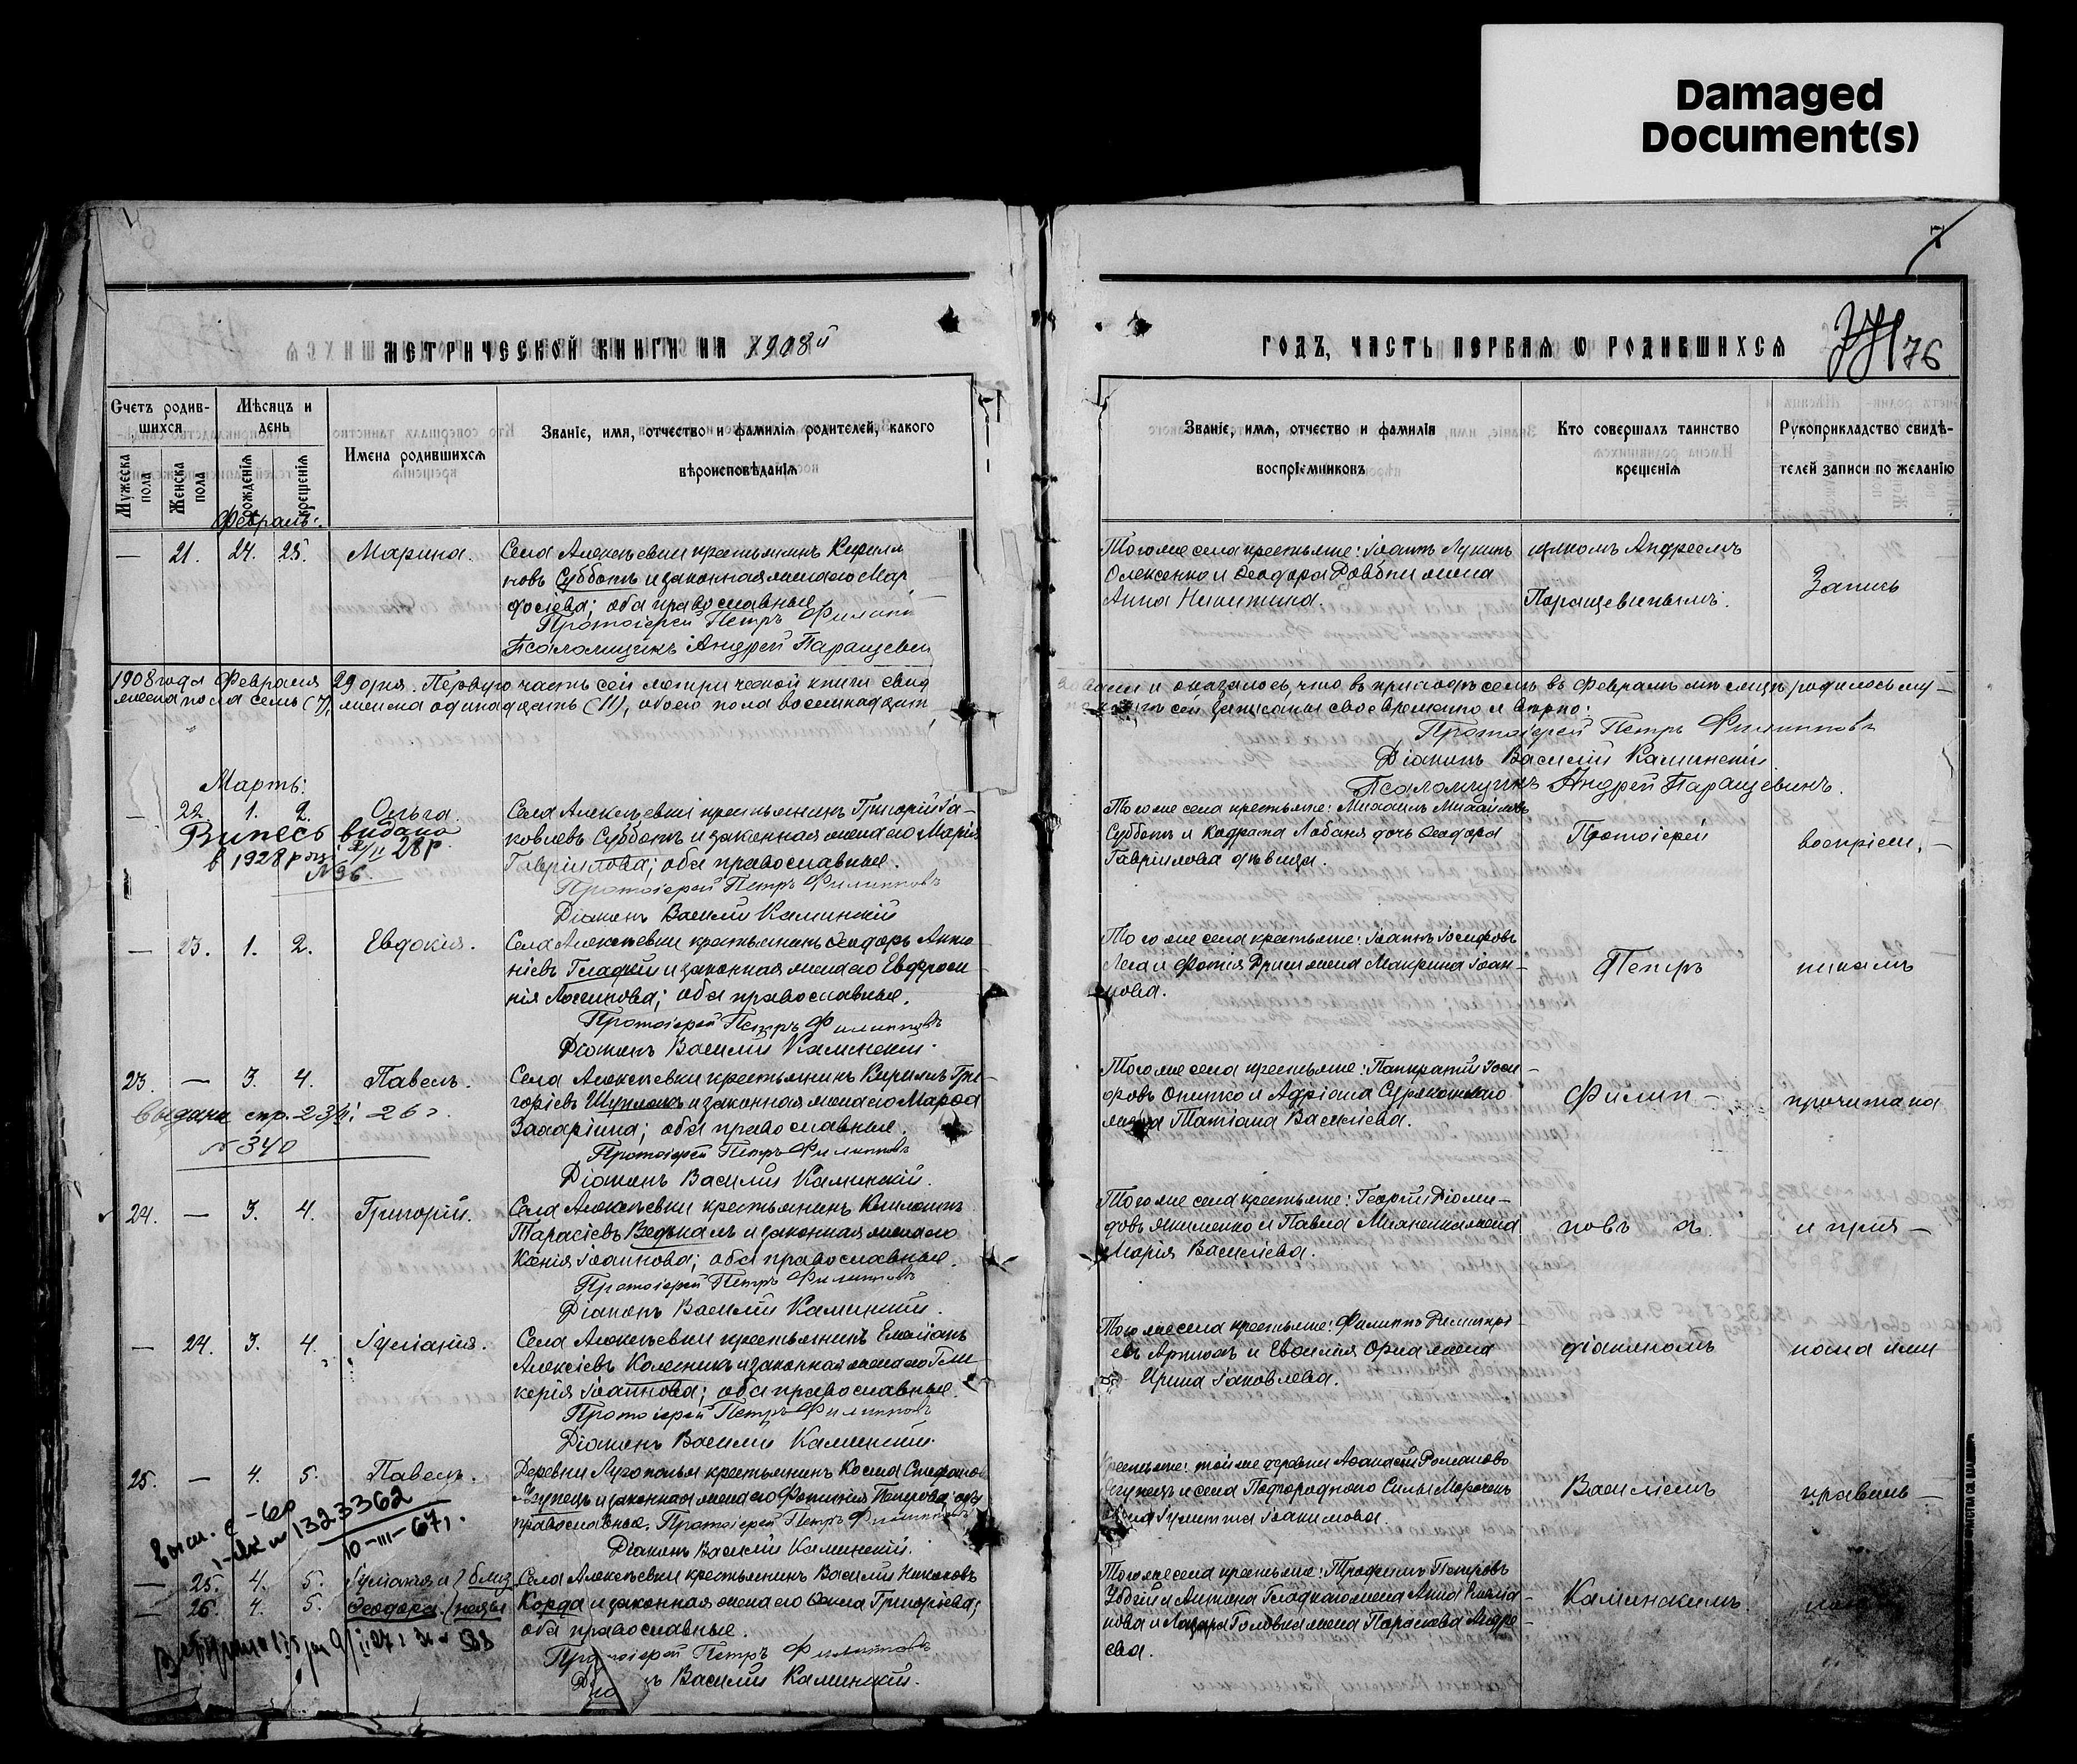 Damaged
Document(s)
7
МЕТРИЧЕСКОЙ КНИГИ НА 1908й
ГОДЪ, ЧАСТЬ ПЕРВАЯ О РОДИВШИХСЯ
76
Счетъ родив-
шихся
Мѣсяцъ и
день
Имена родившихся
Званіе, имя, отчество и фамилія родителей, какого
вѣроисповѣданія
Мужеска пола
Женска пола
рожденія
крещенія
Званіе, имя, отчество и фамилія
воспріемниковъ
Кто совершалъ таинство
крещенія
Рукоприкладство свидѣ-
телей записи по желанію
Февраль:
— 21. 24. 25. Марина.
Села Алексѣевки крестьянинъ Кирилл
новъ Субботъ и законная жена его Мар
фосіева; оба православные
Протоіерей Петръ Филипп
Псаломщикъ Андрей Паращевин
Того же села крестьяне: Іоаннъ Лукинъ
Олексенко и Ѳеодора жена
Анна Никитина.
Андреемъ
Паращевинымъ.
Запись
1908 года Февраля 29 дня. Первую часть сей метрической книги свид
жеска пола семь (7), женска одинадцать (11), обоего пола восемнадцать
вали и оказалось, что въ приходѣ семъ въ Февралѣ мѣсяцѣ родилось му-
сей записаны своевременно и вѣрно:
Протоіерей Петръ Филипповъ
Діаконъ Василій Каминскій
Псаломщикъ Андрей Паращевинъ.
Мартъ:
22. 1. 2. Ольга.
Випесь видано
в 1928 р. 28 р.
№ 36.
Села Алексѣевки крестьянинъ Григорій Іа-
ковлевъ Субботъ и законная жена его Марія
Гавріилова; оба православные.
Протоіерей Петръ Филипповъ
Діаконъ Василій Каминскій
Того же села крестьяне: Михаилъ Михайловъ
Субботъ и Кодрата Лобаня дочь Ѳеодора
Гавріилова дѣвица.
Протоіерей
воспріем.
— 23. 1. 2. Евдокія.
Села Алексѣевки крестьянинъ Ѳеодоръ Анто
ніевъ Гладкій и законная жена его Евфроси-
нія Логинова; оба православные.
Протоіерей Петръ Филипповъ
Діаконъ Василій Каминскій.
Того же села крестьяне: Іоаннъ Іосифовъ
Леса и Фотія жена Макрина Іоан-
нова.
Петръ
никамъ
23. — 3. 4. Павелъ.
№ 340
Села Алексѣевки крестьянинъ Кириллъ Гри-
горіевъ Шуплякъ и законная жена его Марѳа
Захаріина; оба православные.
Протоіерей Петръ Филипповъ
Діаконъ Василій Каминскій.
Того же села крестьяне: Панкратій Іоси-
фовъ Онипко и Адріана
жена Татіана Василіева.
Филип-
прочитана
24. — 3. 4. Григорій.
Села Алексѣевки крестьянинъ
Тарасіевъ Ведькалъ и законная жена его
Ксенія Іоаннова; оба православные.
Протоіерей Петръ Филипповъ
Діаконъ Василій Каминскій.
Того же села крестьяне: Георгій Діоми-
довъ Якименко и Павла Миженка жена
Марія Василіева.
повъ съ
и прія-
— 24. 3. 4. Іуліанія.
Села Алексѣевки крестьянинъ Емеліанъ
Алексіевъ Колесникъ и законная жена его Гли-
керія Іоаннова; оба православные.
Протоіерей Петръ Филипповъ
Діаконъ Василій Каминскій.
Того же села крестьяне: Филиппъ Димитрі-
евъ Артюхъ и Евсилія жена
Ирина Іаковлева.
діакономъ
ними
25. — 4. 5. Павелъ.
1323362
10-III-67г.
Деревни Лугополья крестьянинъ Косма Стефанов
и законная жена его Фотинія Петрова; оба
православные. Протоіерей Петръ Филипповъ
Діаконъ Василій Каминскій.
Крестьяне: той же деревни Аѳанасій Романовъ
и села Подгороднаго Силы Морочекъ
жена Іулитта Іоакимова.
Василіемъ
правиль-
— 25. 4. 5. Іуліанія и близ-
— 26. 4. 5. Ѳеодора нецы
Села Алексѣевки крестьянинъ Василій Николаевъ
Корда и законная жена его Ѳекла Григоріева;
оба православные.
Протоіерей Петръ Филипповъ
Василій Каминскій.
Того же села крестьяне: Трофимъ Петровъ
Убогій и Антона Гладкаго жена Анна
нова и Лазаря Головка жена Параскева Андре-
ева.
Каминскимъ